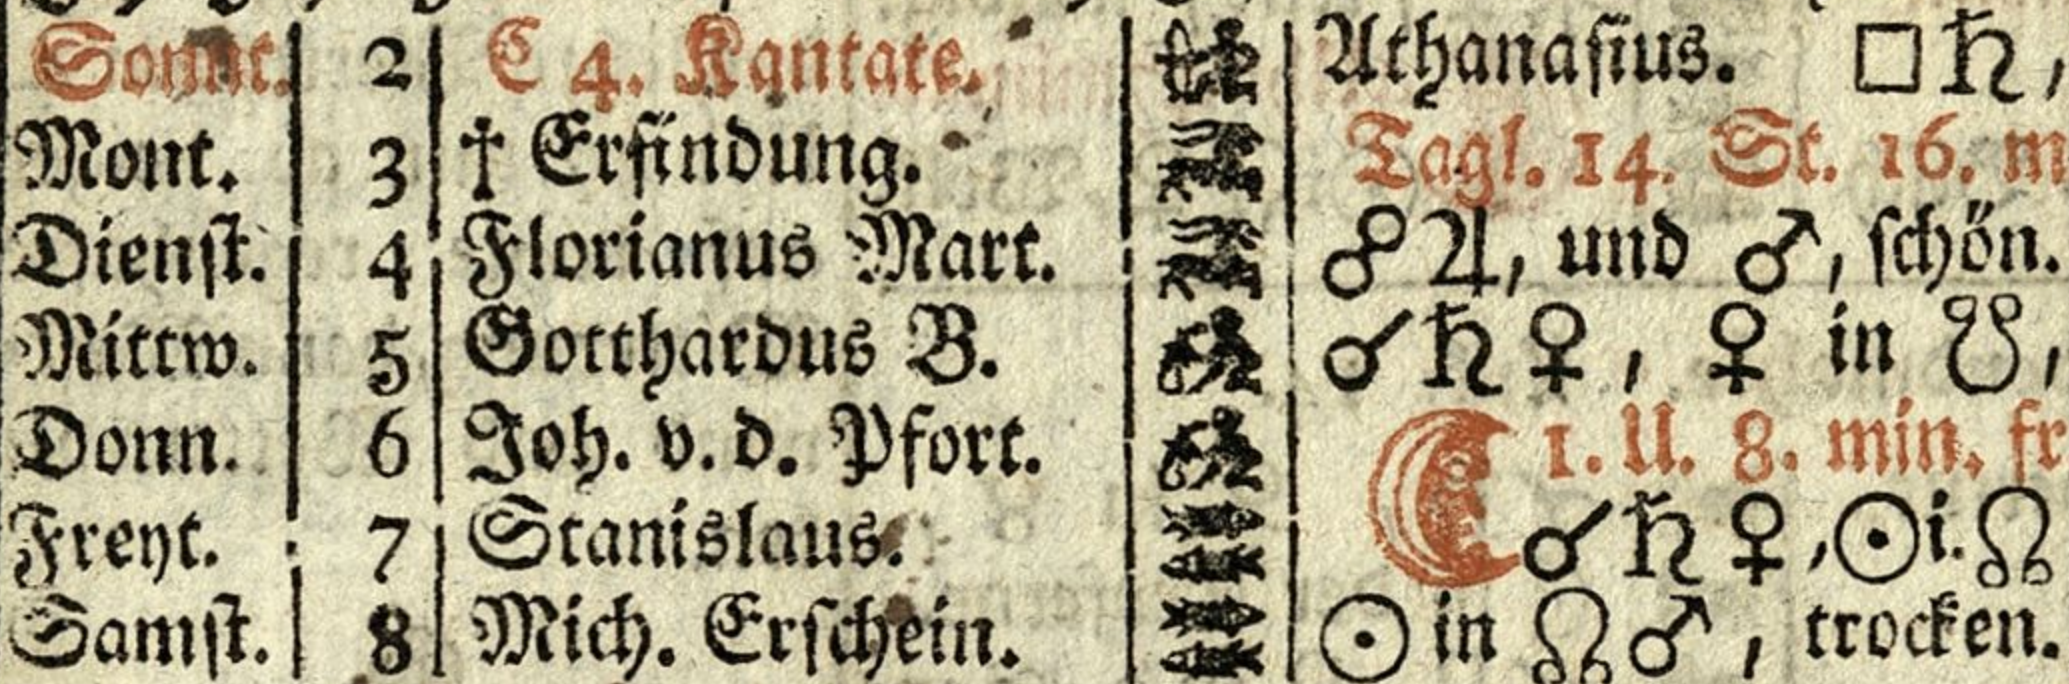 Sonnt. 2 C 4. Kantate. Athanasius. □ ♄,
Mont. 3 † Erfindung. Tagl. 14. St. 16. m
Dienst. 4 Florianus Mart. ☍ ♃, und ♂, schön.
Mittw. 5 Gotthardus B. ☌ ♄ ♀, ♀ in ☋,
Donn. 6 Joh. v. d. Pfort. 1. U. 8. min. fr
Freyt. 7 Stanislaus. ☌ ♄ ♀, ☉ i. ☊
Samst. 8 Mich. Erschein. ☉ in ☊ ♂, trocken.